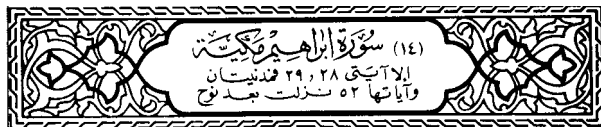 (١٤) سُورَة إبْرَاهِيْم مَكيَّة
إلا آيتى ٢٨ و ٢٩ فمدنيتان
وآياتها ٥٢ نزلت بعد نوح